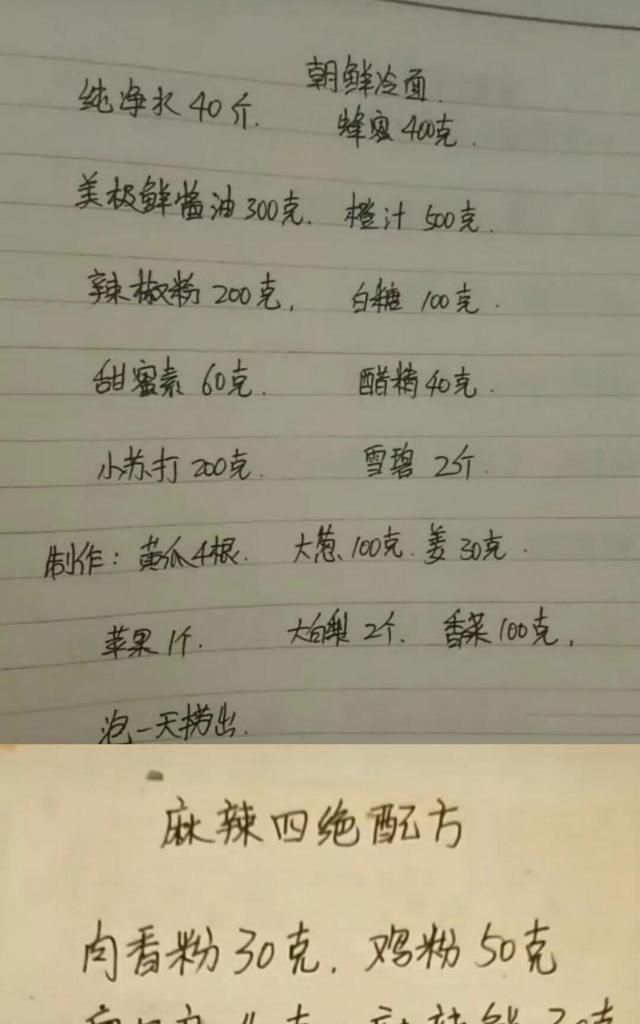 朝鲜冷面.
纯净水40斤. 蜂蜜400克.
美极鲜酱油300克. 橙汁500克.
辣椒粉200克, 白糖100克.
甜蜜素60克. 醋精40克.
小苏打200克. 雪碧2斤.
制作: 黄瓜4根. 大葱100克. 姜30克.
苹果1个. 大白梨2个. 香菜100克,
泡一天捞出.
麻辣四绝配方
肉香粉30克, 鸡粉50克